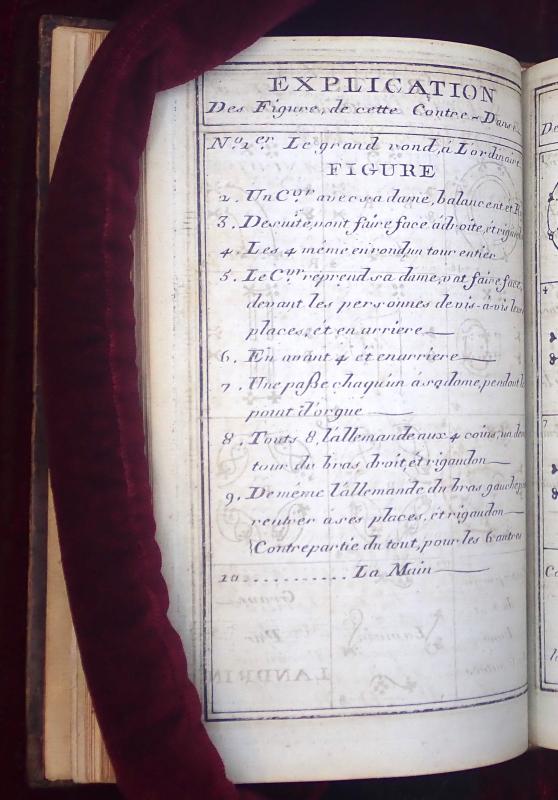 EXPLICATION
Des Figure, de cette Contre-Danse
No. 1er. Le grand rond, à L'ordinaire
FIGURE
2. Un Cer avec sa dame, balancent et
3. De suite, vont faire face à droite, et
4. Les 4 même en rond, un tour entier
5. Le Cer reprend sa dame, vat faire face,
devant les personnes de vis-à-vis
places, ét en arriere
6. En avant 4 ét en arriere
7. Une paße chaqu'un à sa dame, pendant
point d'orgue
8. Touts 8, l'allemande aux 4 coins, un
tour du bras droit, ét rigaudon
9. De même l'allemande du bras gauche,
rentrer à ses places, ét rigaudon
Contrepartie du tout, pour les 6 autres
10 ........... La Main
LANDRIN
De
4
7